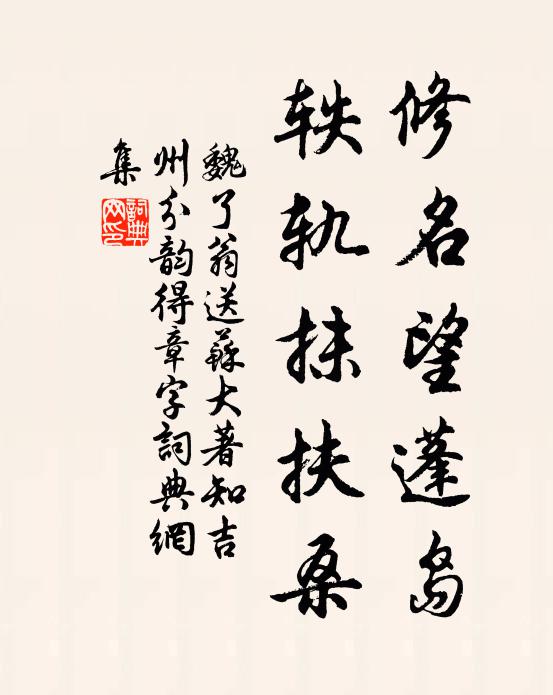 修名望蓬岛
轶轨抹扶桑
魏了翁送蘇大著知吉
州分韵得章字詞典網
集
詞典
网印